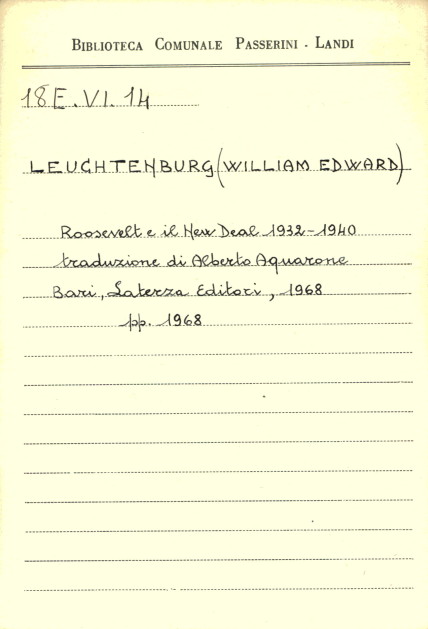 BIBLIOTECA COMUNALE PASSERINI - LANDI
18E.VI.14
LEUCHTENBURG (WILLIAM EDWARD)
Roosevelt e il New Deal 1932-1940
traduzione di Alberto Aquarone
Bari, Laterza Editori, 1968
pp. 1968